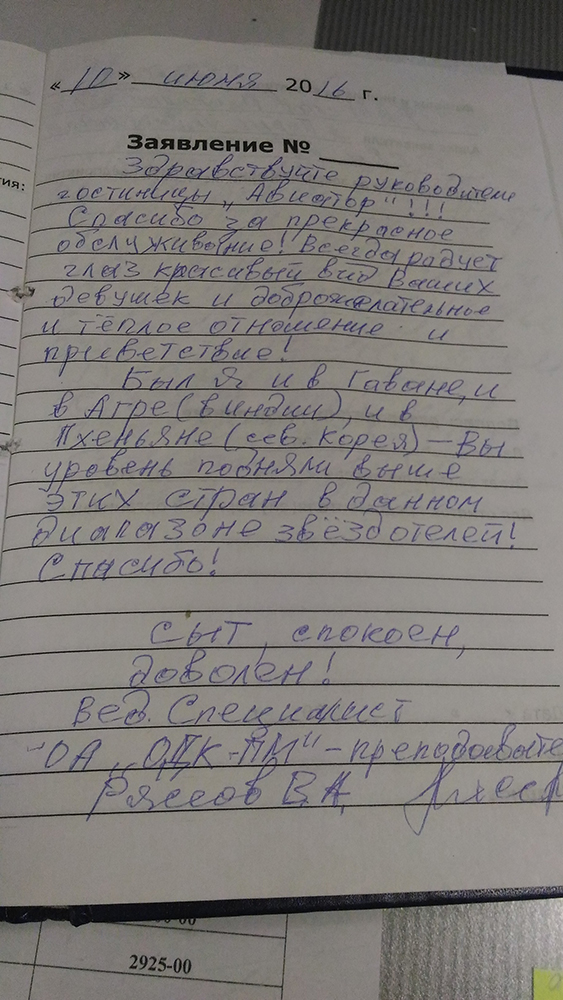 «10» июня 2016 г.
Заявление № ____
Здравствуйте руководители
гостиницы „Авиатор"!!!
Спасибо за прекрасное
обслуживание! Всегда радует
глаз красивый вид Ваших
девушек и доброжелательное
и тёплое отношение и
приветствие!
Был я и в Гаване, и
в Агре (в Индии), и в
Пхеньяне (сев. Корея) – Вы
уровень подняли выше
этих стран в данном
диапазоне звёзд отелей!
Спасибо!
Сыт, спокоен,
доволен!
Вед. Специалист
ОА „ОДК-ПМ" – преподавате
В.А.
тия:
2925-00